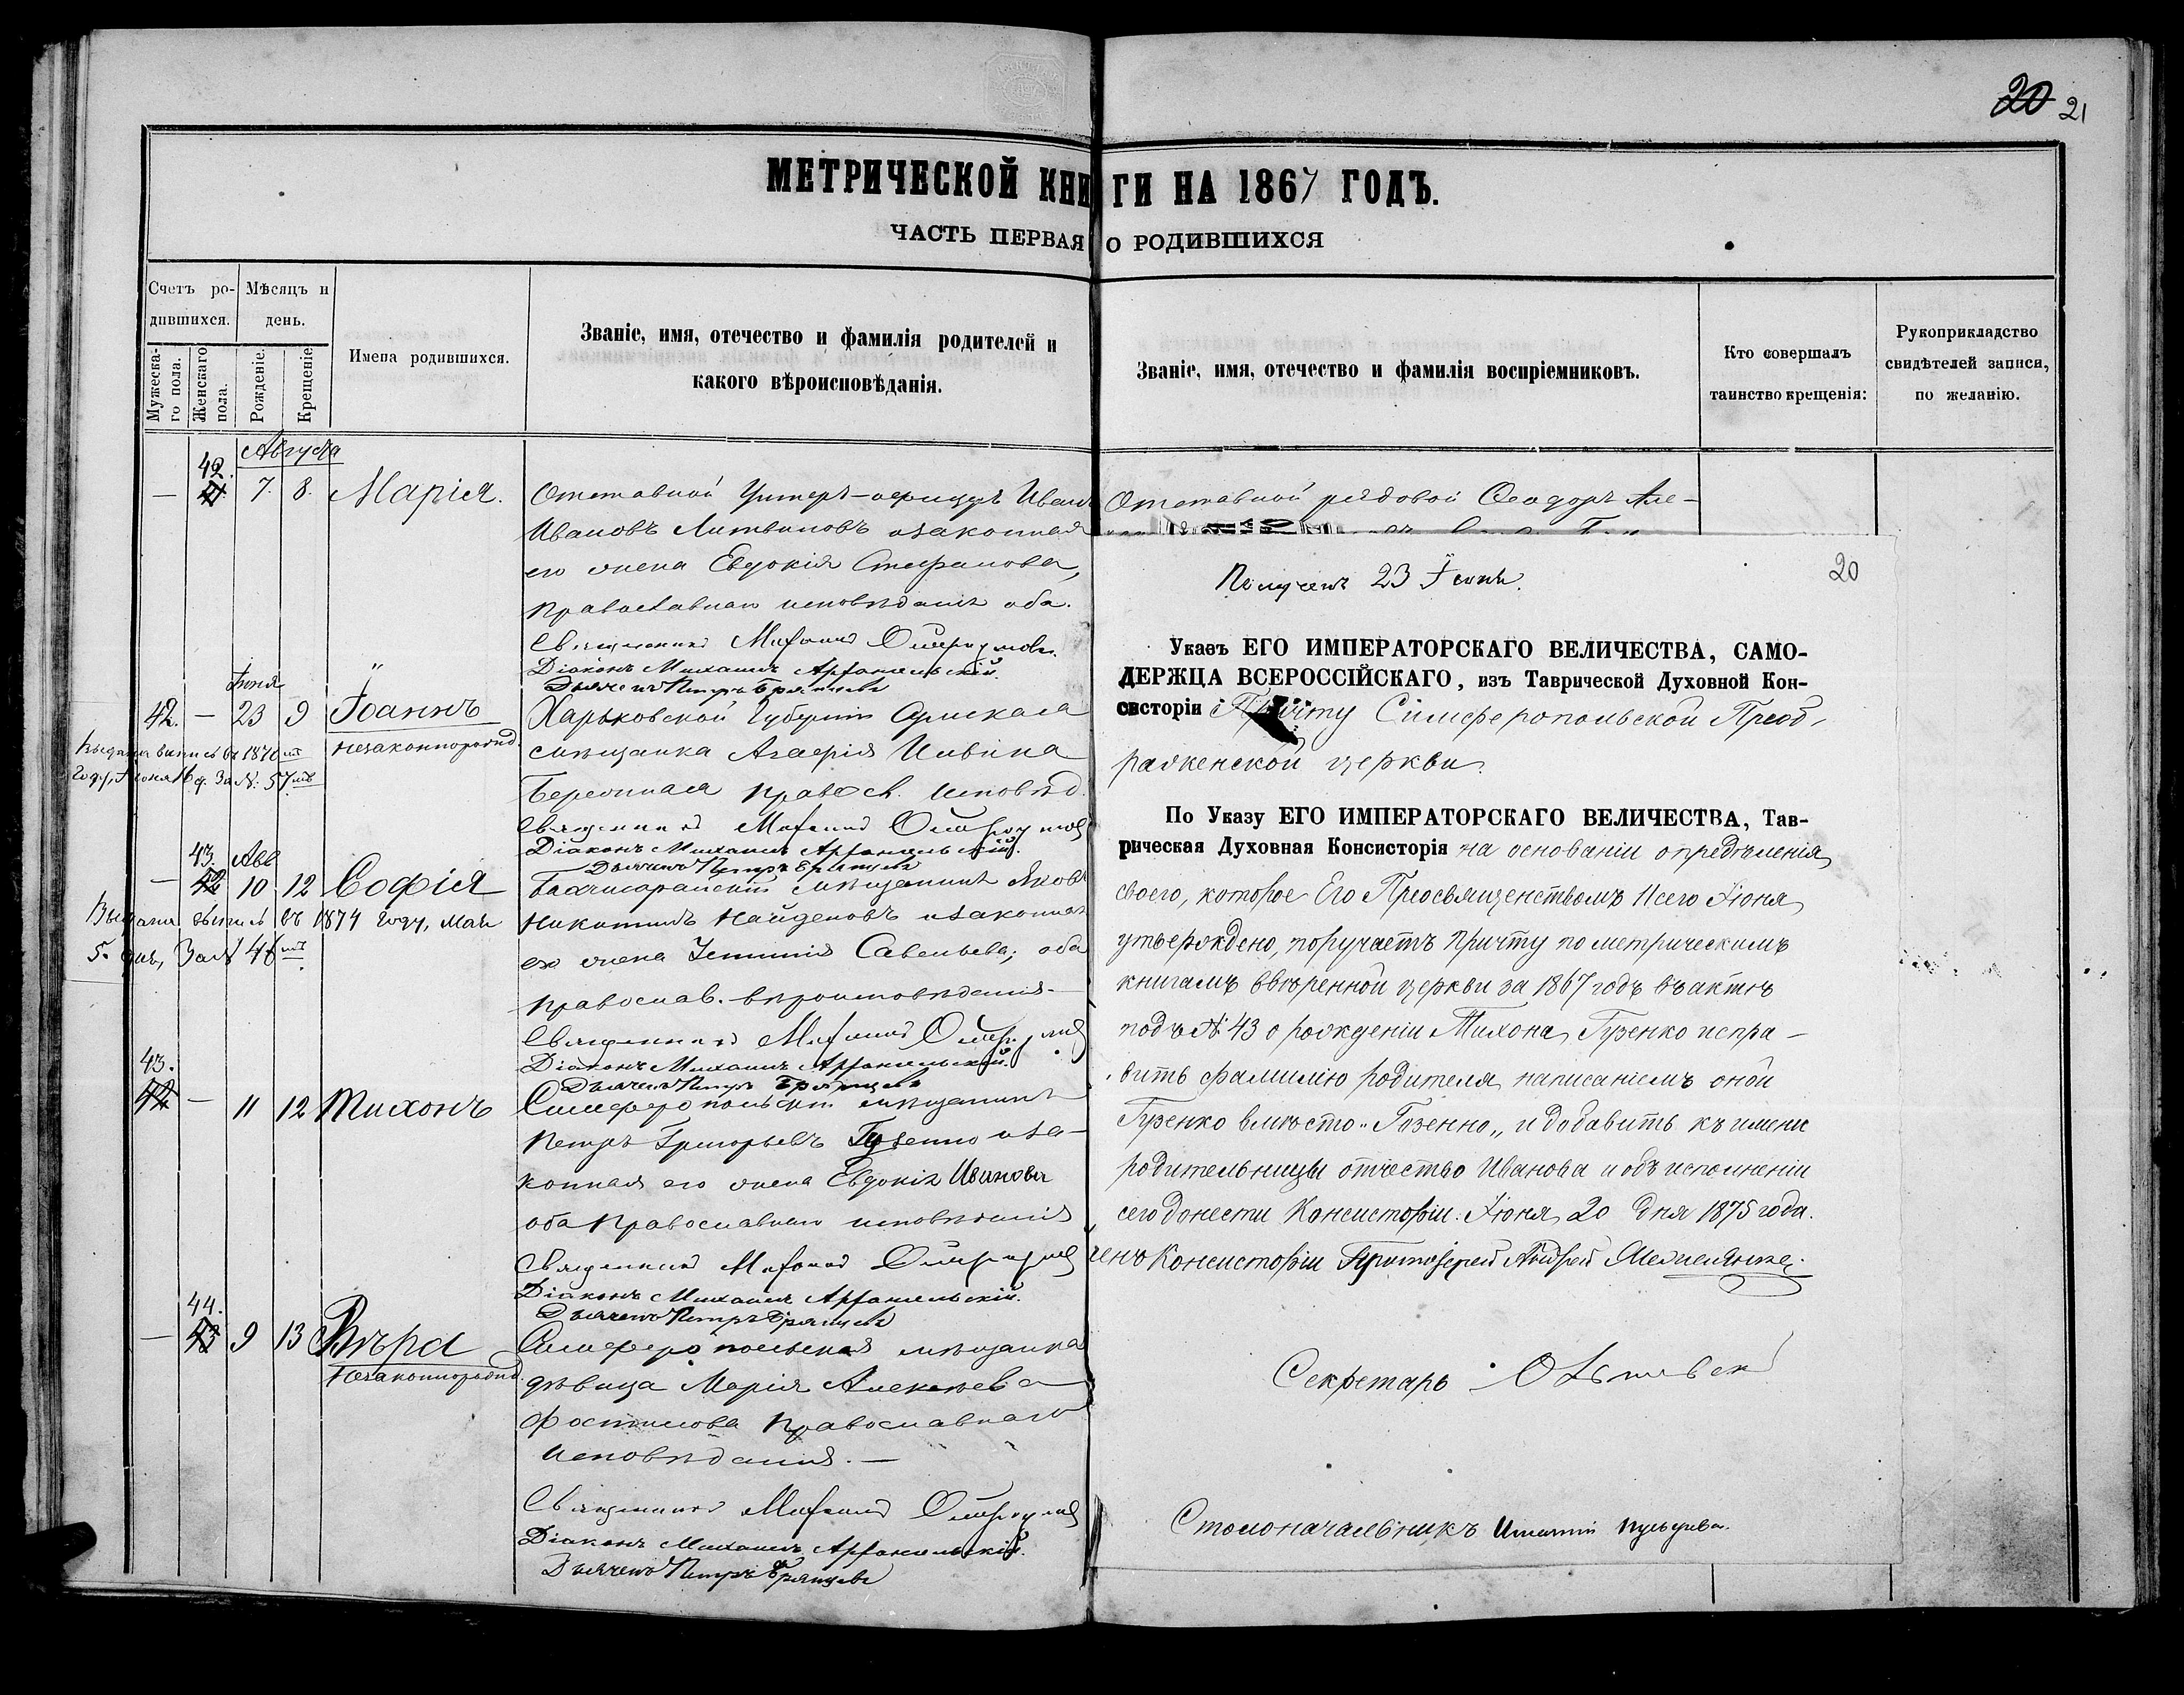 20 21
МЕТРИЧЕСКОЙ КНИГИ НА 1867 ГОДЪ.
ЧАСТЬ ПЕРВАЯ О РОДИВШИХСЯ
Счетъ ро-
дившихся.
Мужеска-
го пола.
Женскаго
пола.
Мѣсяцъ и
день.
Рожденіе.
Крещеніе
Имена родившихся.
Званіе, имя, отечество и фамилія родителей и
какого вѣроисповѣданія.
Званіе, имя, отечество и фамилія воспріемниковъ.
Кто совершалъ
таинство крещенія:
Рукоприкладство
свидѣтелей записи,
по желанію.
Августа
42.
— 41 7. 8. Марія.
Отставной Унтеръ-офицеръ Иванъ
Ивановъ Литвиновъ изаконная
его жена Евдокія Стефанова,
православнаго исповѣданія оба.
Священникъ
Діаконъ Михаилъ Архангельскій.
Дьячекъ Петръ Брянцевъ
Іюня
42. — 23 9 Іоаннъ
незаконнорожд.
Выдана выпись въ 1876 году, Іюня 16 д. За №. 57
Харьковской Губерніи
мѣщанка Агафія
правосл. исповѣд.
Священникъ
Діаконъ Михаилъ Архангельскій.
Дьячекъ Петръ Брянцевъ
43. Авг
— 42 10 12 Софія
Выдана выпись въ 1874 году, Мая
5. дня, За № 46
Бахчисарайскій мѣщанинъ Яковъ
Никитинъ Найденовъ изаконная
его жена Савельева; оба
православ. вѣроисповѣданія.
Священникъ
Діаконъ Михаилъ Архангельскій.
Дьячекъ Петръ Брянцевъ
43.
42 — 11 12 Тихонъ
Симферопольскій мѣщанинъ
Петръ Григорьевъ Гузенко иза-
конная его жена Евдокія Иванова
оба православнаго исповѣданія
Священникъ
Діаконъ Михаилъ Архангельскій.
Дьячекъ Петръ Брянцевъ
44.
— 43 9 13 Вѣра
Незаконнорожд.
Симферопольская мѣщанка
дѣвица Марія Алексѣева
православнаго
исповѣданія. —
Священникъ
Діаконъ Михаилъ Архангельскій.
Дьячекъ Петръ Брянцевъ
Отставной рядовой Ѳеодоръ Але-
Полученъ 23 Іюня. 20
Указъ ЕГО ИМПЕРАТОРСКАГО ВЕЛИЧЕСТВА, САМО-
ДЕРЖЦА ВСЕРОССІЙСКАГО, изъ Таврической Духовной Кон-
систоріи Причту Симферопольской Преоб-
раженской церкви.
По Указу ЕГО ИМПЕРАТОРСКАГО ВЕЛИЧЕСТВА, Тав-
рическая Духовная Консисторія на основаніи опредѣленія
своего, которое Его Преосвященствомъ 11 сего Іюня
утверждено, поручаетъ причту по метрическимъ
книгамъ ввѣренной церкви за 1867 годъ въ актѣ
подъ № 43 о рожденіи Тихона Гузенко испра-
вить фамилію родителя написаніемъ оной
Гузенко вмѣсто „Гозенно„ и добавить къ имени
родительницы отчество Иванова и объ исполненіи
сего донести Консисторіи. Іюня 20 дня 1875 года.
Членъ Консисторіи Протоіерей Андрей
Секретарь
Столоначальникъ